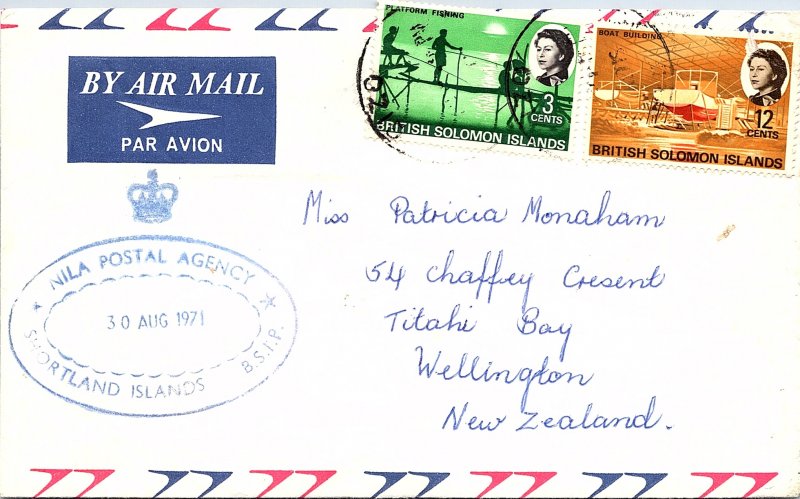 PLATFORM FISHING
3
CENTS
BRITISH SOLOMON ISLANDS
BOAT BUILDING
12
CENTS
BRITISH SOLOMON ISLANDS
BY AIR MAIL
PAR AVION
NILA POSTAL AGENCY
30 AUG 1971
SHORTLAND ISLANDS
B.S.I.P.
Miss Patricia Monaham
54 Chaffey Cresent
Titahi Bay
Wellington
New Zealand.